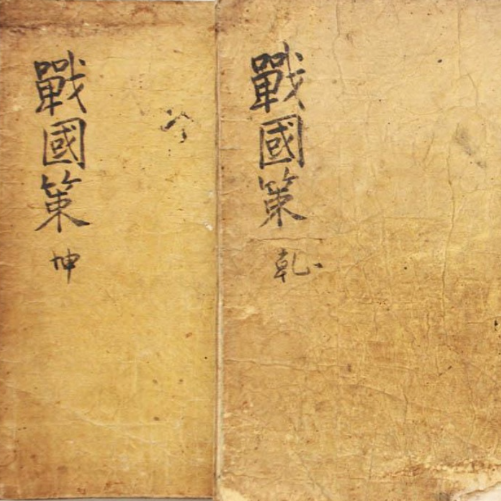 戰國策
乾
戰國策
坤